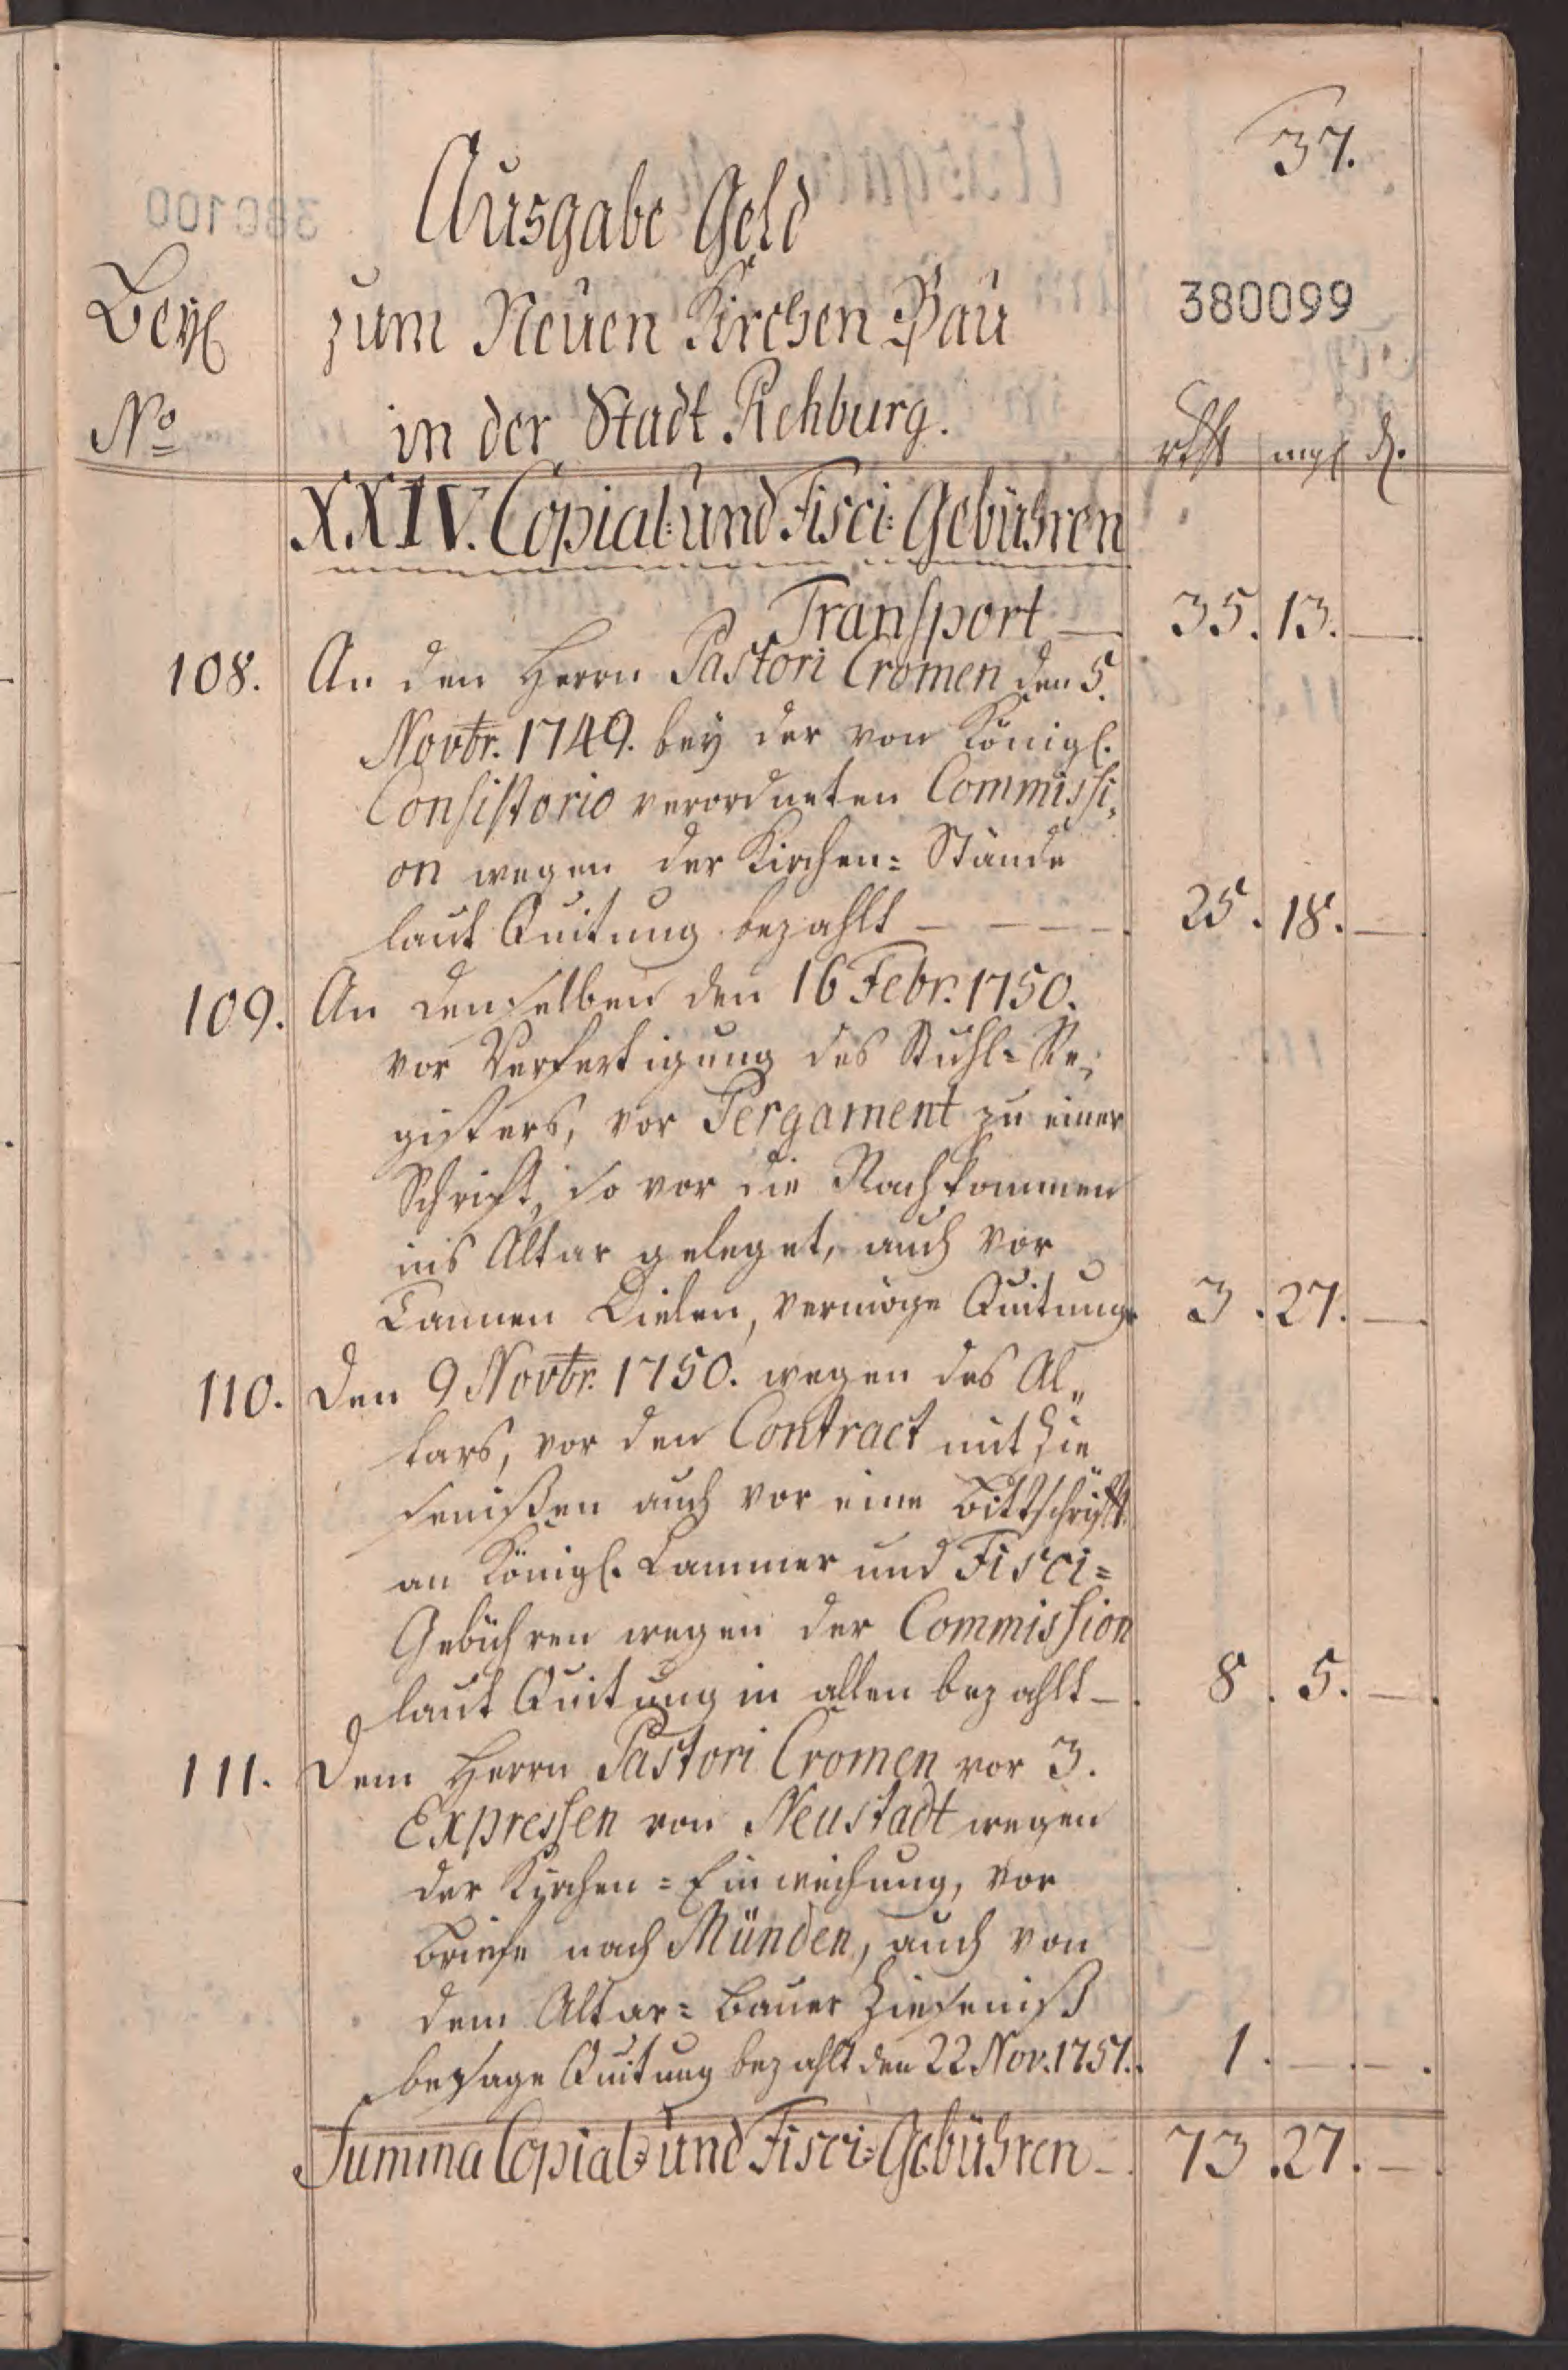 37.
Ausgabe Geld
380099
Beyl
zum Neuen Kirchen Bau
No
in der Stadt Rehburg.
rthl mgl d.
XXIV. Copial- und Fisci- Gebühren
Transport — 35. 13. —
108. An den Herrn Pastori Cromen den 5.
Novbr. 1749. bey der von Königl.
Consistorio verordneten Commissi,
on wegen der Kirchen= Stände
laut Quitung bezahlt — — — — 25. 18. —
109. An denselben den 16 Febr. 1750.
vor Verfertigung des Stuhl= Re,
gisters, vor Pergament zu einer
Schrift, so vor die Nachkommen
ins Altar geleget, auch vor
Tannen Dielen, vermöge Quitung. 3. 27. —
110. Den 9 Novbr. 1750. wegen des Al„
tars, vor den Contract mit Zie
senißen auch vor eine Bittschrift
an Königl. Cammer und Fisci=
Gebühren wegen der Commission
laut Quitung in allen bezahlt — 8. 5. —
111. Dem Herrn Pastori Cromen vor 3.
Expressen von Neustadt wegen
der Kirchen= Einweihung, vor
Briefe nach Münden, auch von
dem Altar= Bauer Zieseniß
besage Quitung bezahlt den 22 Nov. 1751. 1. — . — .
Summa Copial= und Fisci= Gebühren — 73. 27. —
380100